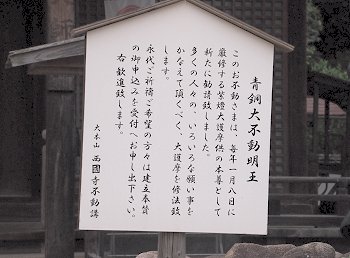 青銅大不動明王
このお不動さまは、毎年一月八日に
厳修する柴燈大護摩供の本尊として
新たに勧請致しました。
多くの人々の、いろいろな願い事を
かなえて頂くべく、大護摩を修法致
します。
永代ご祈祷ご希望の方々は建立奉賛
の御申込みを受付へお申し出下さい。
右歓進致します。
大本山 西國寺不動講